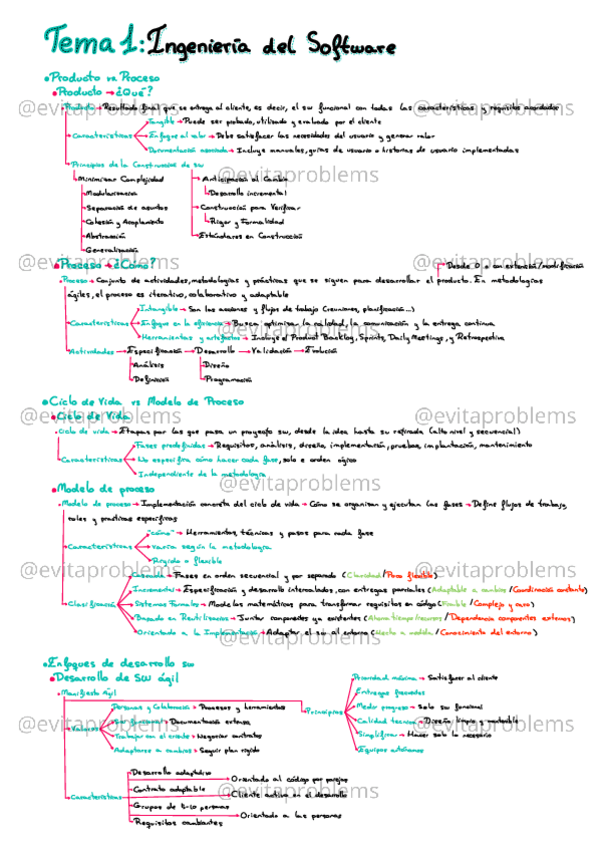 Tema 1: Ingeniería del Software
Producto vs Proceso
Producto → ¿Qué?
@evitaproblems @evitaproblems
Producto → Resultado final que se entrega al cliente, es decir, el sw funcional con todas las características y requisitos acordados
Tangible → Puede ser probado, utilizado y evaluado por el cliente
Características Enfoque al valor → Debe satisfacer las necesidades del usuario y generar valor
Documentación asociada → Incluye manuales, guías de usuario o historias de usuario implementadas
Principios de la Construcción de sw
@evitaproblems
Minimizar Complejidad → Anticipación al Cambio
Modularización Desarrollo incremental
Separación de asuntos → Construcción para Verificar
Cohesión y Acoplamiento Rigor y Formalidad
Abstracción Estándares en Construcción
Generalización
@evitaproblems @evitaproblems
Proceso → ¿Cómo? → Desde 0 o con extensión/modificación
Proceso → Conjunto de actividades, metodologías y prácticas que se siguen para desarrollar el producto. En metodologías
ágiles, el proceso es iterativo, colaborativo y adaptable
Intangible → Son las acciones y flujos de trabajo (reuniones, planificación...)
Características Enfoque en la eficiencia → Busca optimizar la calidad, la comunicación y la entrega continua
@evitaproblems
Herramientas y artefactos → Incluye el Product Backlog, Sprints, Daily Meetings, y Retrospective
Actividades → Especificación → Desarrollo → Validación → Evolución
Análisis Diseño
Definición Programación
Ciclo de Vida vs Modelo de Proceso
Ciclo de Vida
@evitaproblems @evitaproblems
Ciclo de vida → Etapas por las que pasa un proyecto sw, desde la idea hasta su retirada (alto nivel y secuencial)
Fases predefinidas → Requisitos, análisis, diseño, implementación, pruebas, implantación, mantenimiento
Características No especifica cómo hacer cada fase, solo el orden lógico
Independiente de la metodología
@evitaproblems
Modelo de proceso
Modelo de proceso → Implementación concreta del ciclo de vida → Cómo se organizan y ejecutan las fases → Define flujos de trabajo,
roles y prácticas específicas
"cómo" → Herramientas, técnicas y pasos para cada fase
Características varía según la metodología
Rígido o flexible
@evitaproblems @evitaproblems
Cascada → Fases en orden secuencial y por separado (Claridad/Poco flexible)
Incremental → Especificación y desarrollo intercalados, con entregas parciales (Adaptable a cambios/Coordinación constante)
Clasificación Sistemas Formales → Modelos matemáticos para transformar requisitos en código (Fiable/Complejo y caro)
Basado en Reutilización → Juntar componentes ya existentes (Ahorra tiempo/recursos/Dependencia componentes externos)
Orientado a la Implementación → Adaptar el sw al entorno (Hecho a medida/Conocimiento del entorno)
@evitaproblems
Enfoques de desarrollo sw
Desarrollo de SW ágil
Manifiesto Ágil
Prioridad máxima → Satisfacer al cliente
Entregas frecuentes
Personas y Colaboración > Procesos y herramientas
Principios Medir progreso → Solo sw funcional
Valores Sw funcional > Documentación extensa
@evitaproblems @evitaproblems
Calidad técnica → Diseño limpio y mantenible
Trabajar con el cliente > Negociar contratos
Simplificar → Hacer solo lo necesario
Adaptarse a cambios > Seguir plan rígido
Equipos autónomos
Desarrollo adaptativo → Orientado al código por parejas
Contrato adaptable → Cliente activo en el desarrollo
@evitaproblems
Características
Grupos de 5-10 personas → Orientado a las personas
Requisitos cambiantes